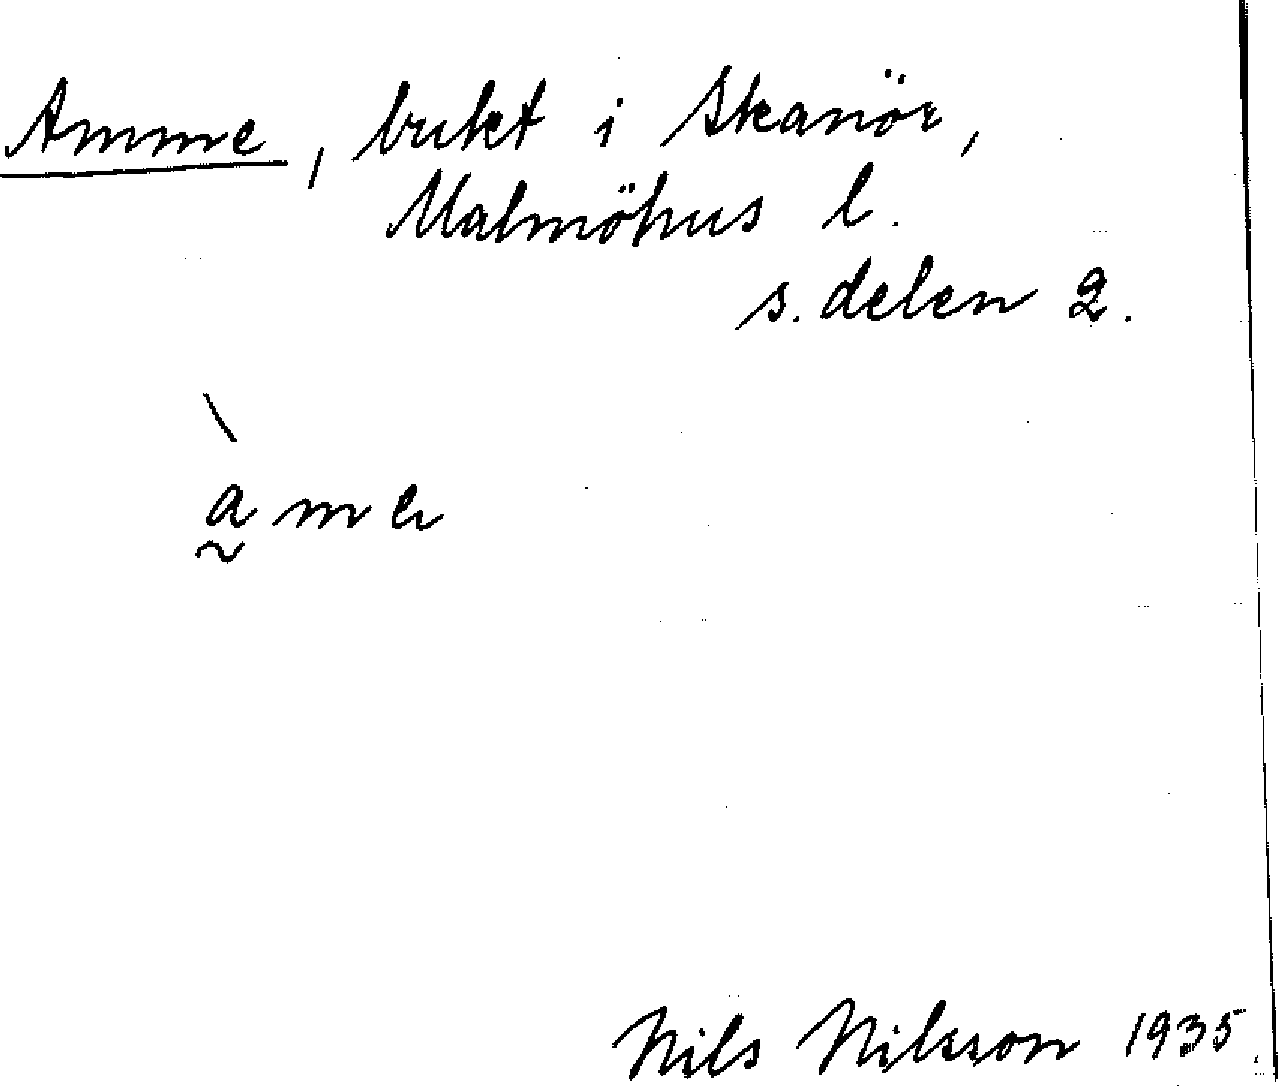 Amme, bukt i Skanör,
Malmöhus l.
s. delen 2.
a m e
Nils Nilsson 1935.